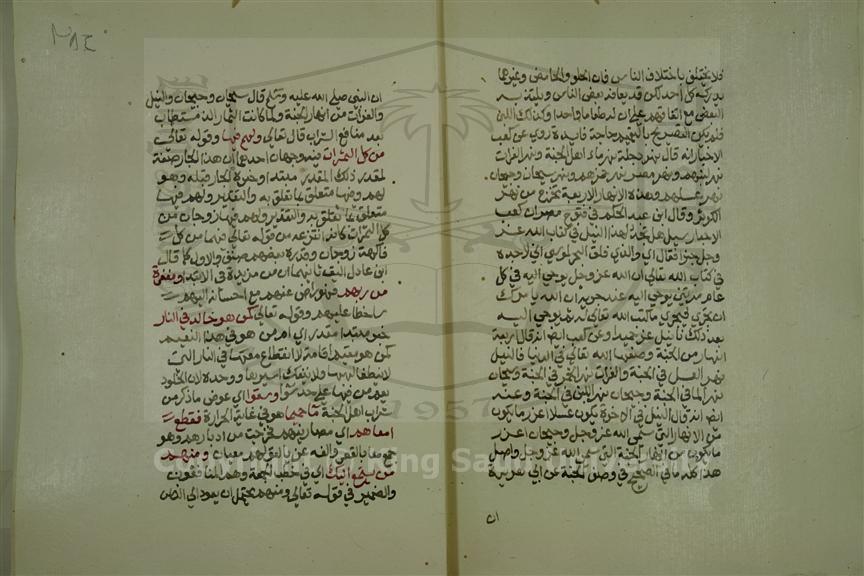 فلا يختلف باختلاف الناس فان الحلو والحامض وغيرها
يدركه كل احد لكن قد يعافه بعض الناس ويلتذ به
البعض مع اتفاقهم على ان له طعما واحدا وكذلك اللبن
فلم يكن للتصريح بالتعميم حاجة فايدة روي عن كعب
الاحبار انه قال نهر دجلة نهر ماء اهل الجنة ونهر الفرات
نهر لبنهم ونهر مصر نهر خمرهم ونهر سيحان وجيحان
نهر عسلهم وهذه الانهار الاربعة تخرج من نهر
الكوثر وقال ابن عبد الحكم في فتوح مصر ان كعب
الاحبار سيل هل تجد لهذا النيل في كتاب الله عز
وجل خبرا فقال اي والذي فلق البحر لموسى اني لاجده
في كتاب الله تعالى ان الله عز وجل يوحي اليه في كل
عام مرتين يوحي اليه عند جريه ان الله يامرك
ان تجري فيجري ما كتب الله تعالى له ثم يوحي اليه
بعد ذلك يا نيل عد حميدا وعن كعب ايضا انه قال اربعة
انهار من الجنة وضعها الله تعالى في الدنيا فالنيل
نهر العسل في الجنة والفرات نهر الخمر في الجنة وسيحان
نهر الماء في الجنة وجيحان نهر اللبن في الجنة وعنه
ايضا انه قال النيل في الاخرة يكون عسلا اغزر ما يكون
من الانهار التي سمى الله عز وجل وجيحان اغزر
ما يكون من انهار الجنة التي سمى الله عز وجل واصل
هذا كله ما في الصحيح في وصف الجنة عن ابي هريرة
ان
ان النبي صلى الله عليه وسلم قال سيحان وجيحان والنيل
والفرات من انهار الجنة ولما كانت الثمار الذ مستطاب
بعد منافع الشراب قال تعالى ولهم فيها وقوله تعالى
من كل الثمرات فيه وجهان احدهما ان هذا الجار صفة
لمقدر ذلك المقدر مبتدا وخبره الجار قبله وهو
لهم وفيها متعلق بما تعلق به والتقدير ولهم فيها
متعلق بما تعلق به والتقدير ولهم فيها زوجان من
كل الثمرات كانه انتزعه من قوله تعالى فيهما من كل
فاكهة زوجان وقدره بعضهم صنف والاول كما قال
ابن عادل اليق ثانيهما ان من مزيدة في الابتدا ومغفرة
من ربهم فهو راض عنهم مع احسانه اليهم
ساخطا عليهم وقوله تعالى كمن هو خالد في النار
خبر مبتدا مقدر اي امن هو في هذا النعيم
كمن هو مقيم اقامة لا انقطاع معها في النار التي
لا ينطفا لهيبها ولا ينفك اسيرها ووحده لان الخلود
يعم من فيها على حد سوا وسقوا اي عوض ما ذكر من
شراب اهل الجنة ماء حميما هو في غاية الحرارة فقطع
امعاهم اي مصارينهم فخرجت من ادبارهم وهو
جمع معا بالقصر والفه عن يا لقولهم معيان ومنهم
من يستمع اليك اي في خطب الجمعة وهم المنافقون
والضمير في قوله تعالى ومنهم يحتمل ان يعود الى الناس
1957